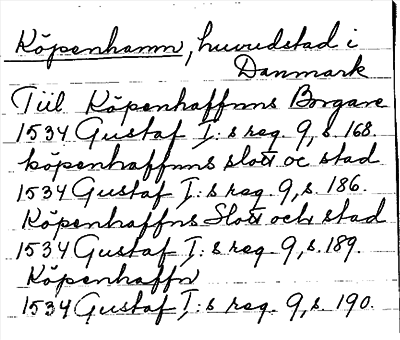 Köpenhamn, huvudstad i
Danmark
Till Köpenhaffnns Borgare
1534 Gustaf I:s reg. 9, s. 168.
köpenhaffnns slott oc stad
1534 Gustaf I:s reg. 9, s. 186.
Köpenhaffns Slott och stad
1534 Gustaf I:s reg. 9, s. 189.
Köpenhaffn
1534 Gustaf I:s reg. 9, s. 190.